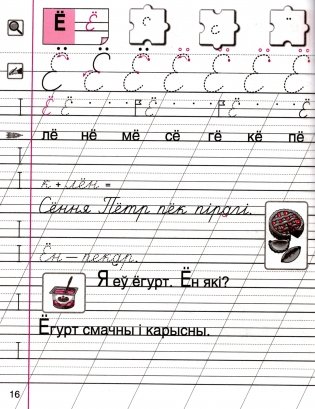 Ё Ё
Ё Ё Ё Ё Ё Ё Ё
Ё Ё Ё Ё Ё
лё нё мё сё гё кё пё
к + лён =
Сёння Пётр пёк пірагі.
Ён — пекар.
Я еў ёгурт. Ён які?
Ёгурт смачны і карысны.
16